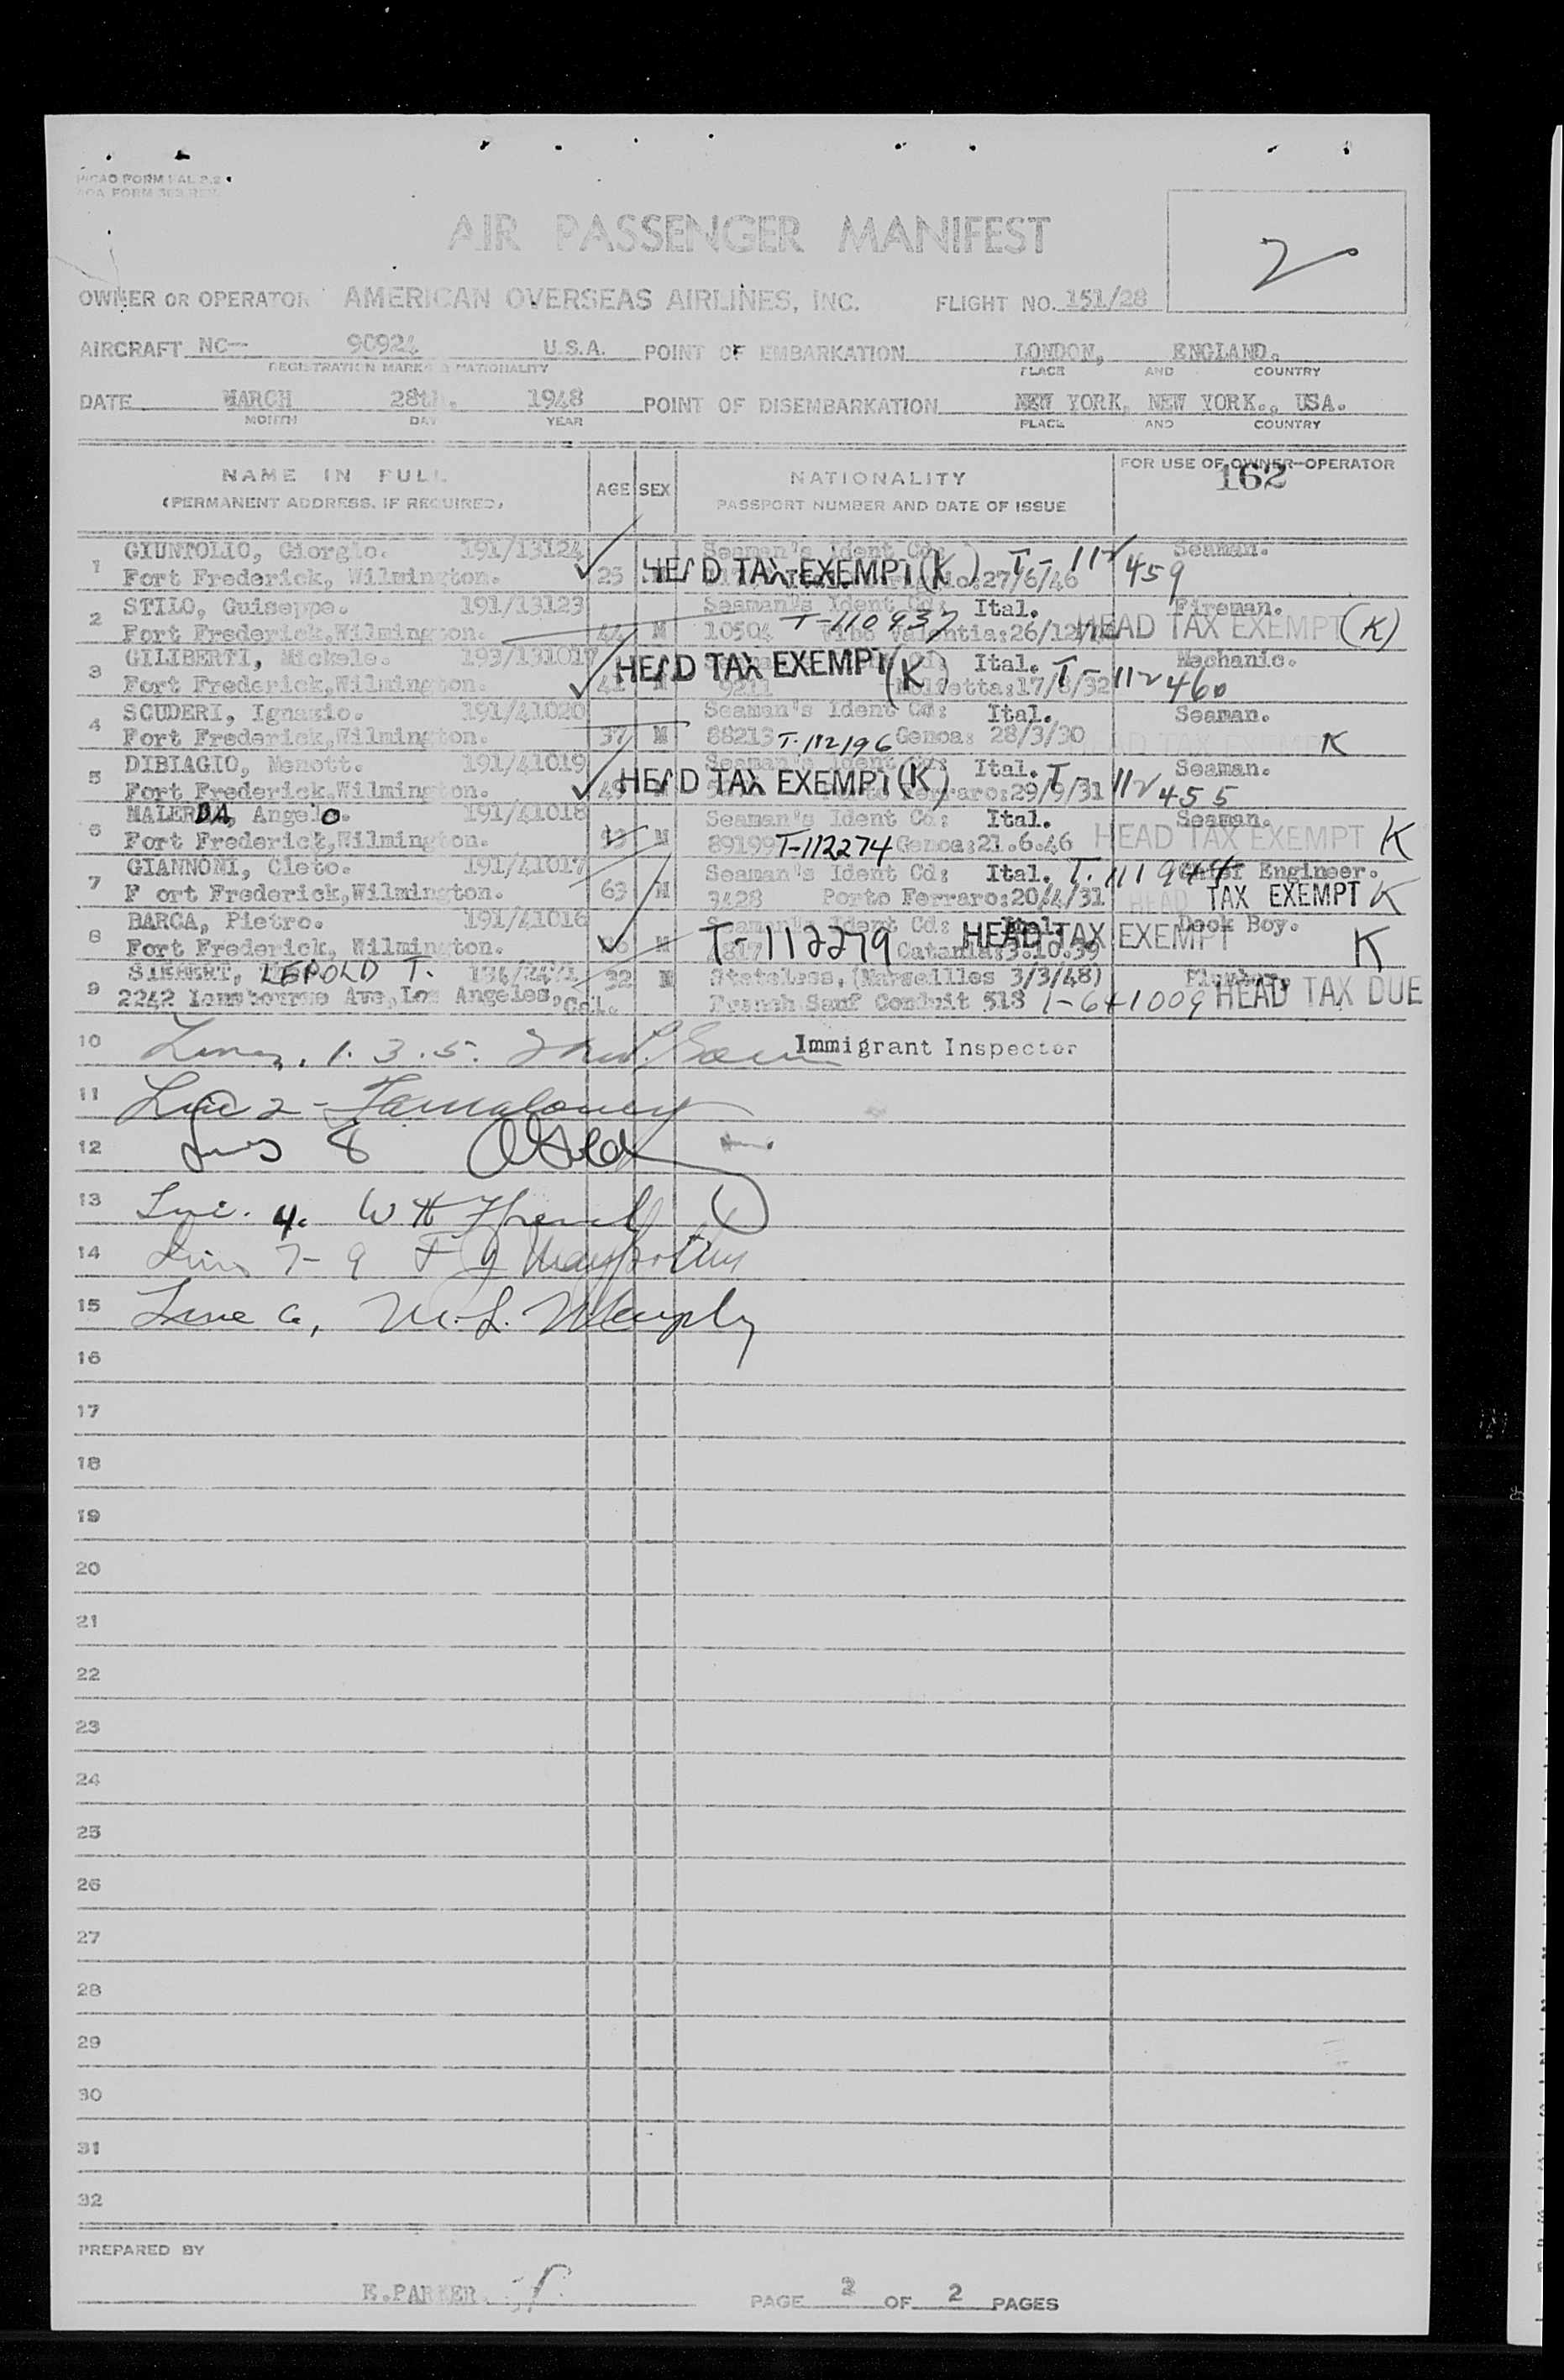 PICAO FORM FAL 2.2
AOA FORM 362 REV.
AIR PASSENGER MANIFEST
2
OWNER OR OPERATOR AMERICAN OVERSEAS AIRLINES, INC. FLIGHT NO. 151/28
AIRCRAFT NC— 90924 U.S.A. POINT OF EMBARKATION LONDON, ENGLAND.
REGISTRATION MARKS & NATIONALITY PLACE AND COUNTRY
DATE MARCH 28th. 1948 POINT OF DISEMBARKATION NEW YORK, NEW YORK., USA.
MONTH DAY YEAR PLACE AND COUNTRY
NAME IN FULL AGE SEX NATIONALITY FOR USE OF OWNER-OPERATOR
(PERMANENT ADDRESS, IF REQUIRED) PASSPORT NUMBER AND DATE OF ISSUE 162
1 GIUNTOLIO, Giorgio. 191/13124 Seaman's Ident Cd: T-112459 Seaman.
Fort Frederick, Wilmington. 25 HEAD TAX EXEMPT (K) 27/6/46
2 STILO, Guiseppe. 191/13123 Seaman's Ident Cd: Ital. Fireman.
Fort Frederick,Wilmington. 44 M 10504 T-110937 Vibo Valentia:26/12/ HEAD TAX EXEMPT (K)
3 GILIBERTI, Mickele. 193/131017 HEAD TAX EXEMPT (K) Ital. T-112460 Mechanic.
Fort Frederick,Wilmington. 41 M 9211 Molfetta:17/8/32
4 SCUDERI, Ignazio. 191/41020 Seaman's Ident Cd: Ital. Seaman.
Fort Frederick,Wilmington. 37 M 88213 T-112196 Genoa: 28/3/30 HEAD TAX EXEMPT K
5 DIBIAGIO, Menott. 191/41019 Seaman's Ident Cd: Ital. T-112455 Seaman.
Fort Frederick,Wilmington. 49 HEAD TAX EXEMPT (K) Porto Ferraro:29/9/31
6 MALERDA, Angelo. 191/41018 Seaman's Ident Cd: Ital. Seaman.
Fort Frederick,Wilmington. M 89199 T-112274 Genoa:21.6.46 HEAD TAX EXEMPT K
7 GIANNONI, Cleto. 191/41017 Seaman's Ident Cd: Ital. T-111944 Chief Engineer.
F ort Frederick,Wilmington. 63 M 3428 Porto Ferraro:20/4/31 HEAD TAX EXEMPT K
8 BARCA, Pietro. 191/41016 Seaman's Ident Cd: Ital. Deck Boy.
Fort Frederick, Wilmington. M T-112279 Catania:3.10.39 HEAD TAX EXEMPT K
9 SIEBERT, LEPOLD T. 32 M Stateless, (Marseilles 3/3/48)
2242 Ave,Los Angeles, Cal. French Sauf Conduit 518 T-641009 HEAD TAX DUE
10 Lines 1.3.5. Immigrant Inspector
11 Line 2 -
12 Lines 8
13 Line. 4. W H French
14 Lines 7-9 F J
15 Line 6, M. L. Murphy
16
17
18
19
20
21
22
23
24
25
26
27
28
29
30
31
32
PREPARED BY
E.PARKER.
PAGE 2 OF 2 PAGES